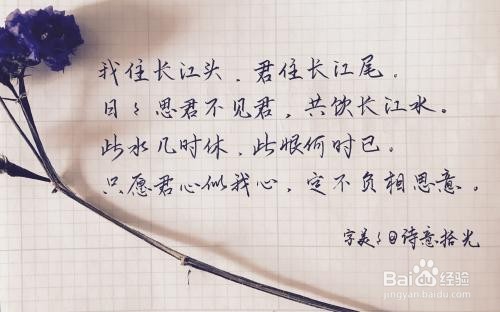 我住长江头，君住长江尾。
日々思君不见君，共饮长江水。
此水几时休，此恨何时已。
只愿君心似我心，定不负相思意。
字美々日诗意拾光
Baidu经验
jingyan.baidu.com